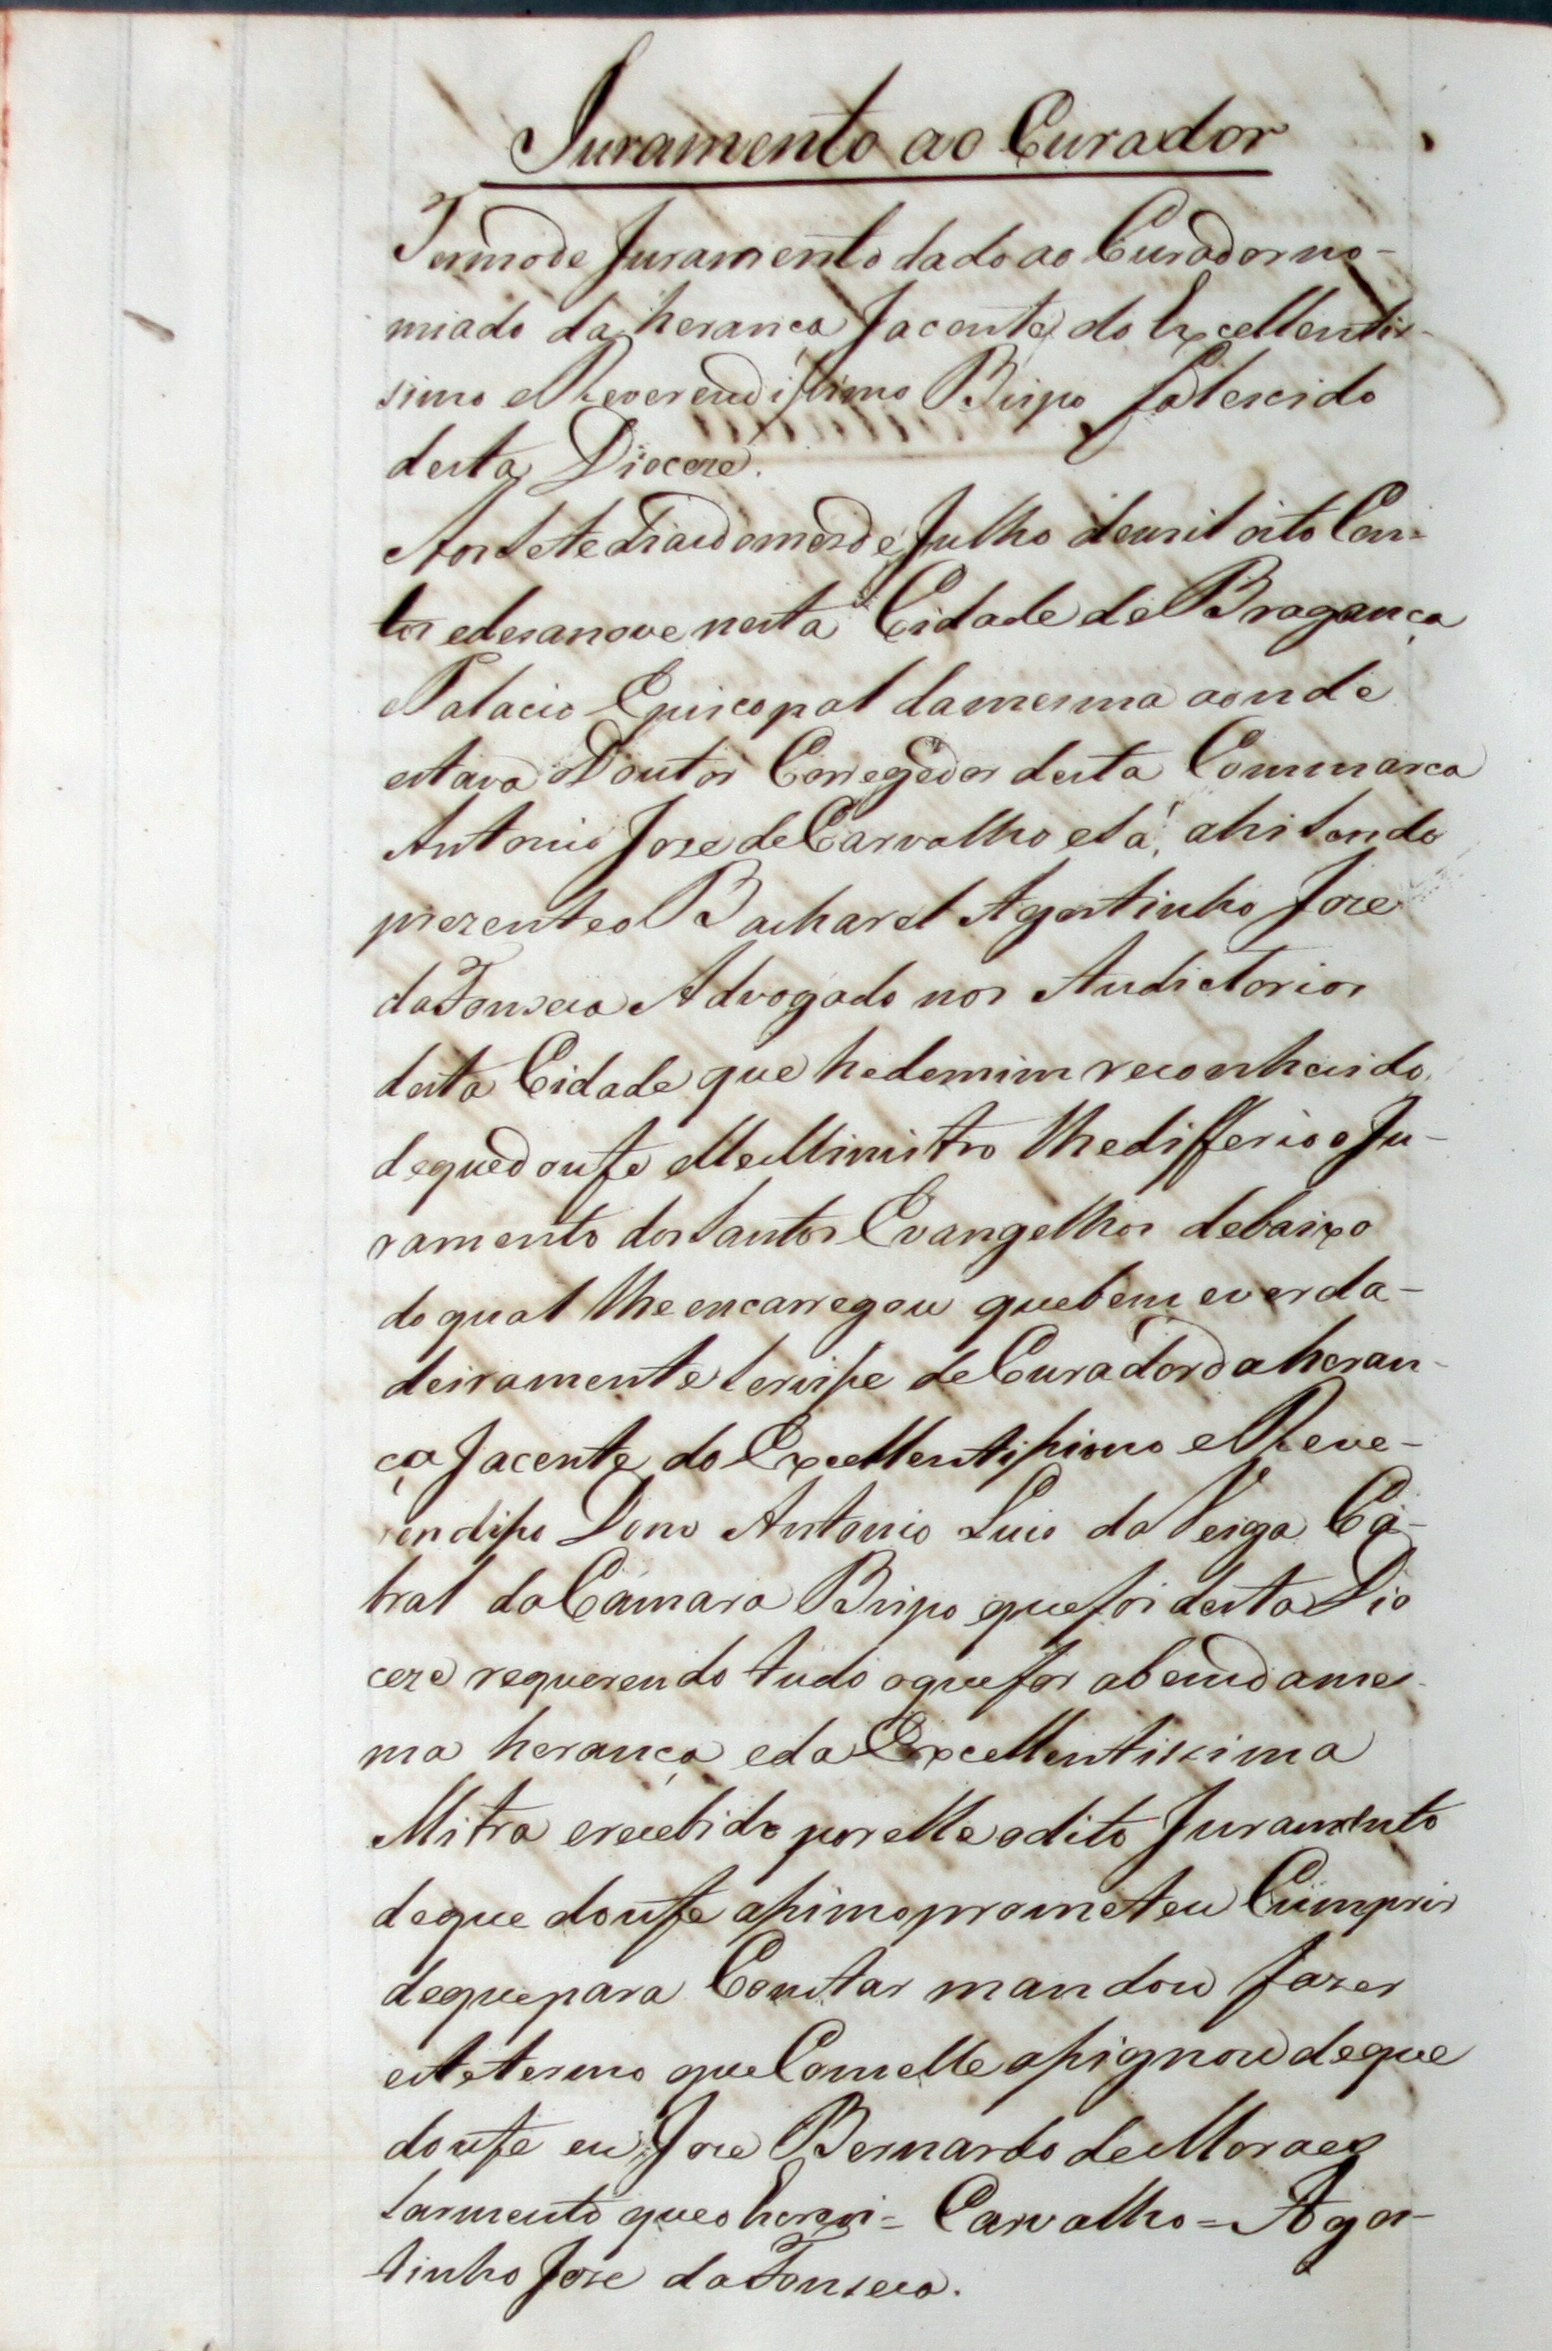 Juramento ao Curador
Termo de Juramento dado ao Curador no-
miado da heranca Jacente do Excellentis-
simo e Reverendissimo Bispo falescido
desta Dioceze.
Aos Sete dias do mes de Julho de mil oito Cen-
tos e desanove nesta Cidade de Bragança
e Palacio Episcopal da mesma aonde
estava o Doutor Corregedor desta Commarca
Antonio Joze de Carvalho e Sá, ahi Sendo
prezente o Bacharel Agostinho Joze
da Fonseca Advogado nos Audictorios
desta Cidade que he de mim reconhecido,
de que dou fe elle Ministro lhe differio o Ju-
ramento dos Santos Evangelhos debaixo
do qual lhe encarregou que bem e verda-
deiramente Servisse de Curador da heran-
ça Jacente do Excellentissimo e Reve-
rendisso Dom Antonio Luis da Veiga Ca-
bral da Camara Bispo que foi desta Dio
ceze requerendo tudo o que for a bem da mes-
ma herança e da Excellentissima
Mitra e recebido por elle o dito Juramento
de que dou fe assim o prometeu Cumprir
de que para Constar mandou fazer
este termo que Com elle assignou de que
dou fe eu Joze Bernardo de Moraes
Sarmento que o Escrevi = Carvalho = Agos-
tinho Joze da Fonseca.